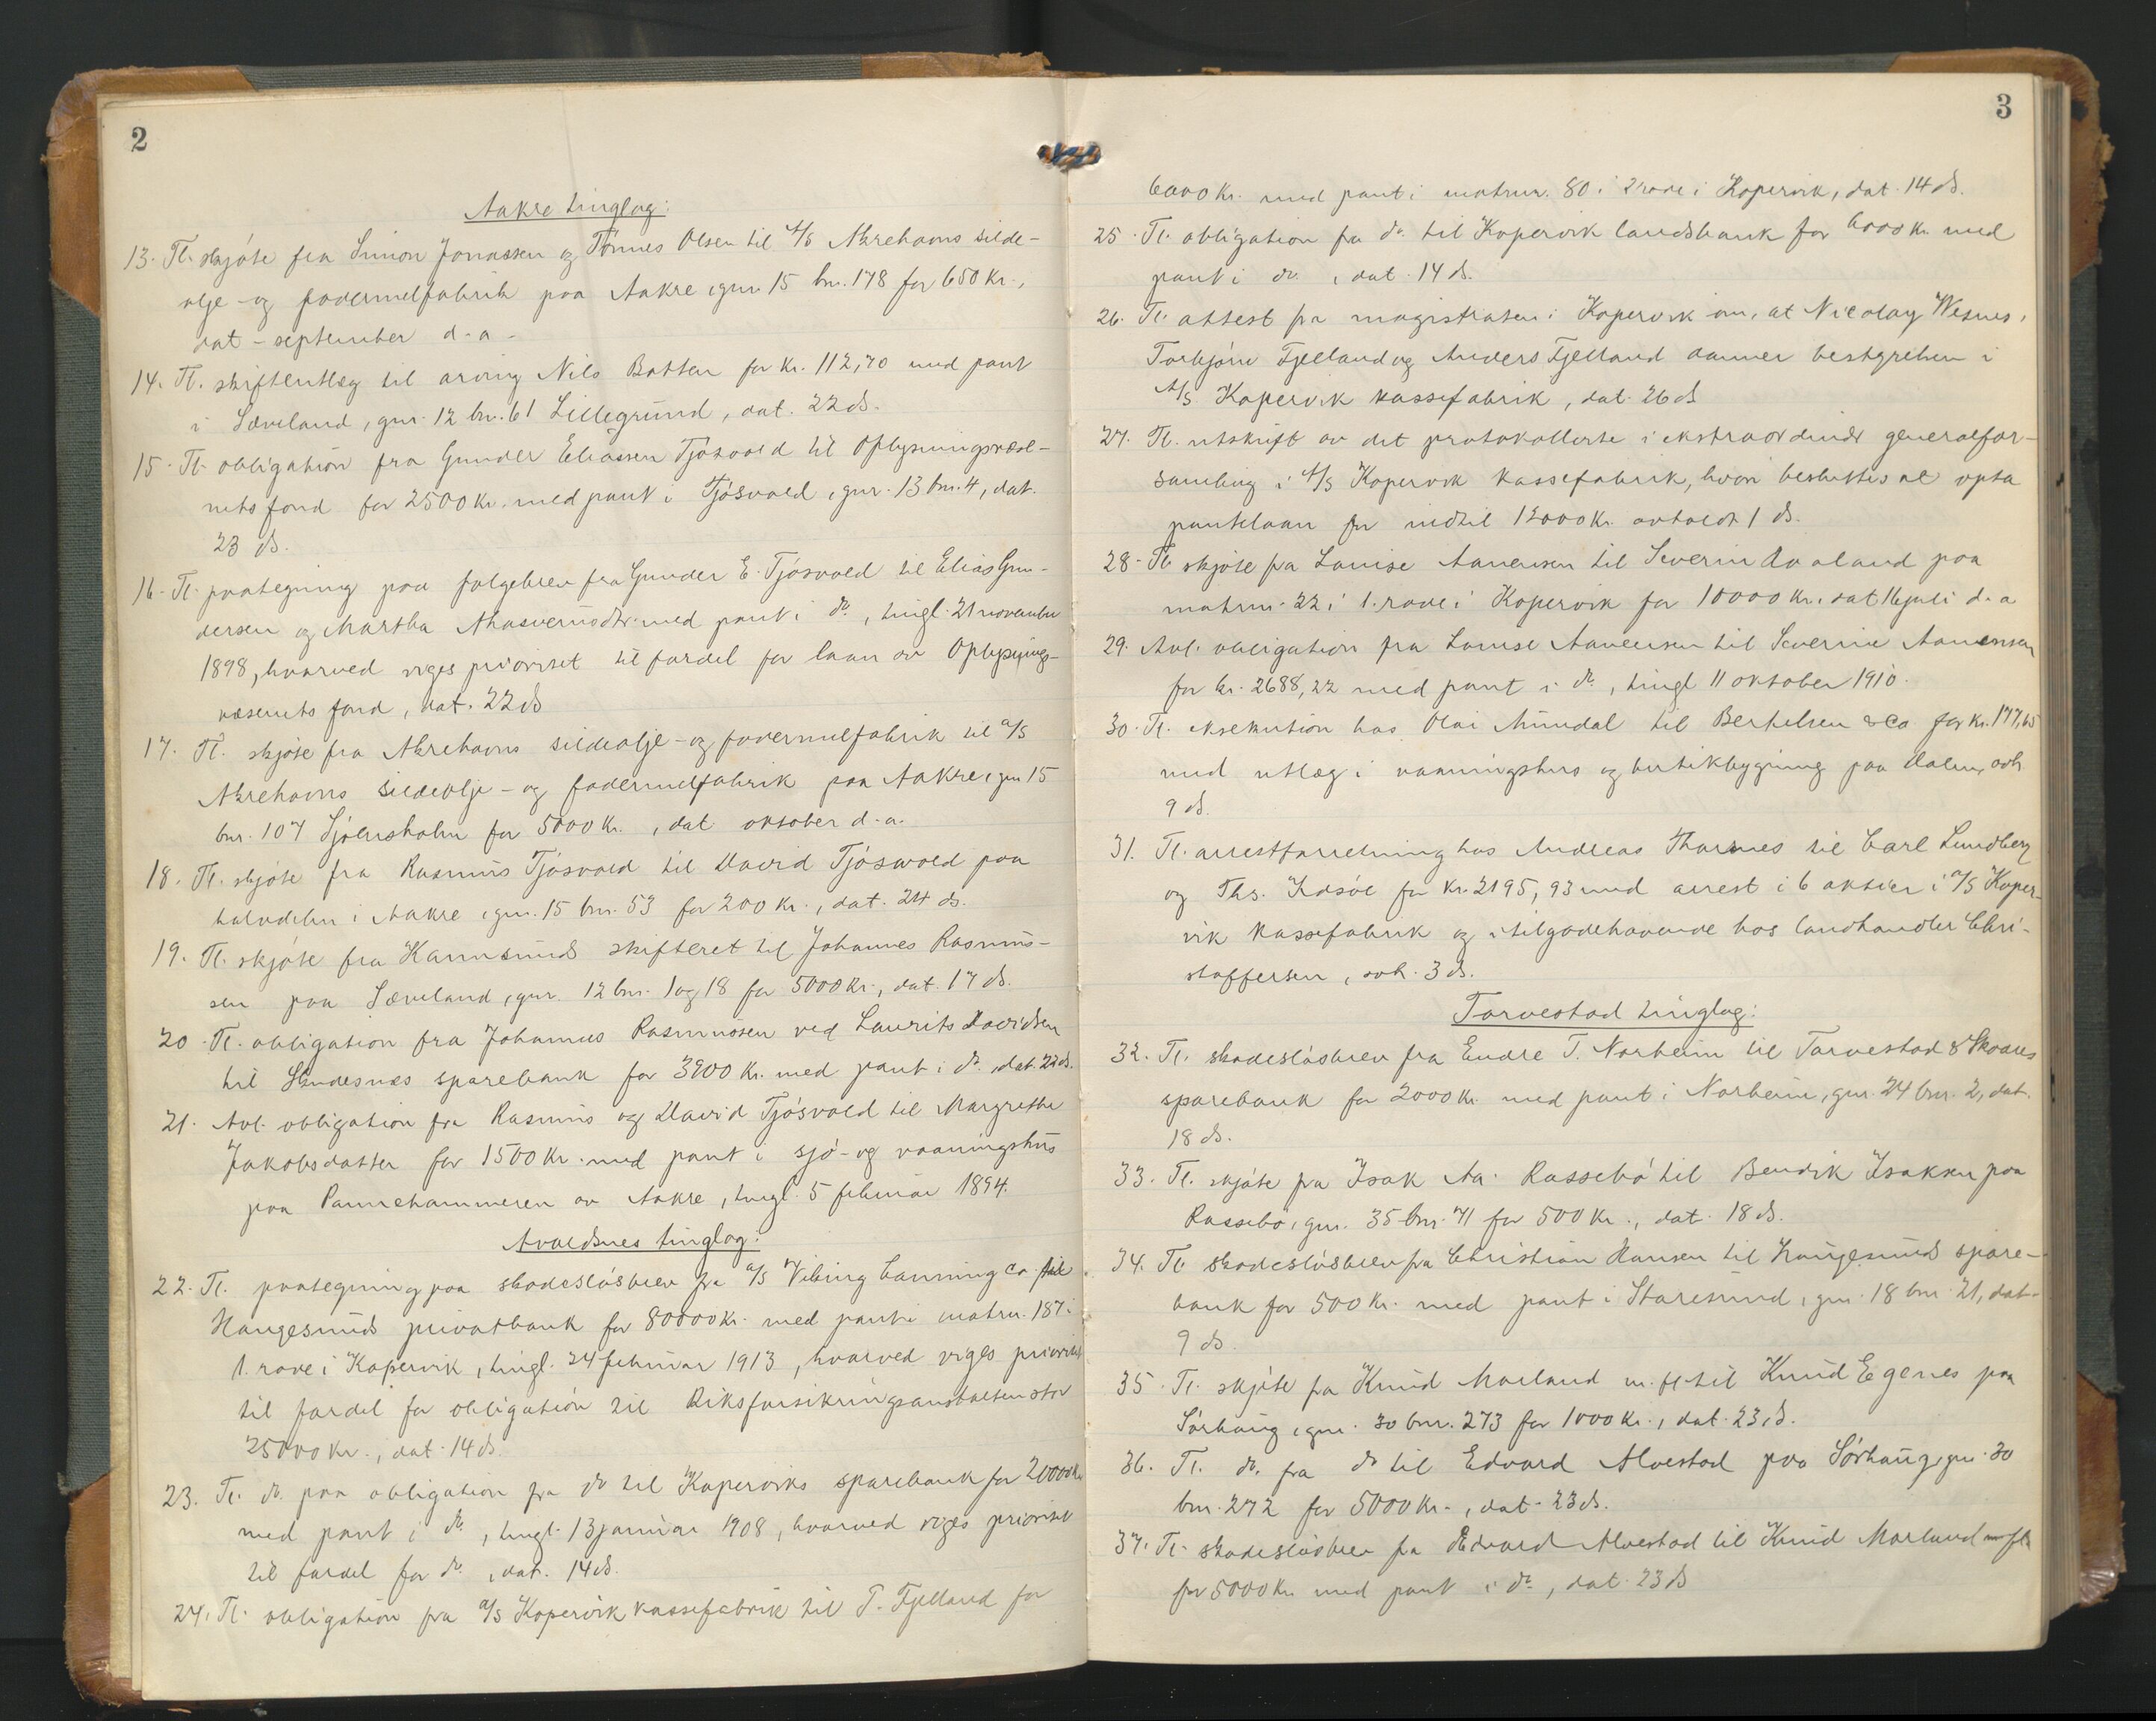 2
Aakre tinglag:
13. Tl. skjøte fra Simon Jonassen og Tønnes Olsen til A/S Akrehavns silde-
olje- og fodermelfabrik paa Aakre, gnr. 15 bnr. 178 for 650 kr.,
dat - september d.a.
14. Tl. skifteutlæg til arving Nils Batten for kr. 112,70 med pant
i Sæveland, gnr. 12 bnr. 61 Lillegrund, dat. 22 ds.
15. Tl. obligation fra Gunder Eliassen Tjøsvold til Oplysningsvæse-
nets fond for 2500 kr. med pant i Tjøsvold, gnr. 13 bnr. 4, dat.
23 ds.
16. Tl. paategning paa følgebrev fra Gunder E. Tjøsvold til Elias Gun-
dersen og Martha Ahasverusdtr. med pant i do, tingl. 21 november
1898, hvorved viges prioritet til fordel for laan av Oplysnings-
væsenets fond, dat. 22 ds
17. Tl. skjøte fra Akrehavns sildeolje- og fodermelfabrik til A/S
Akrehavns sildeolje- og fodermelfabrik paa Aakre, gnr 15
bnr. 107 Sjøensholm for 5000 kr., dat oktober d.a.
18. Tl. skjøte fra Rasmus Tjøsvold til David Tjøsvold paa
halvdelen i Aakre, gnr. 15 bnr. 53 for 200 kr., dat. 24 ds.
19. Tl. skjøte fra Karmsunds skifteret til Johannes Rasmus-
sen paa Sæveland, gnr. 12 bnr. 1 og 18 for 5000 kr., dat. 17 ds.
20. Tl. obligation fra Johannes Rasmussen ved Laurits Davidsen
til Skudesnes sparebank for 3900 kr. med pant i do, dat. 22 ds.
21. Avl. obligation fra Rasmus og David Tjøsvold til Margrethe
Jakobsdatter for 1500 kr. med pant i sjø- og vaaningshus
paa Pannehammeren av Aakre, tingl. 5 februar 1894.
Avaldsnes tinglag:
22. Tl. paategning paa skadesløsbrev fra A/S Viking Canning Co til
Haugesunds privatbank for 80000 kr. med pant i matrnr. 187 i
1. rode i Kopervik, tingl. 24 februar 1913, hvorved viges prioritet
til fordel for obligation til Riksforsikringsanstalten stor
25000 kr., dat. 14 ds.
23. Tl. do. paa obligation fra do til Koperviks sparebank for 20000 kr
med pant i do, tingl. 13 januar 1908, hvorved viges prioritet
til fordel for do, dat. 14 ds.
24. Tl. obligation fra A/S Kopervik kassefabrik til T. Fjelland for
3
6000 kr. med pant i matrnr. 80 i 2 rode i Kopervik, dat. 14 ds.
25. Tl. obligation fra do. til Kopervik landsbank for 6000 kr. med
pant i do., dat. 14 ds.
26. Tl. attest fra magistraten i Kopervik om, at Nicolay Wesnes,
Torbjørn Fjelland og Anders Fjelland danner bestyrelsen i
A/S. Kopervik kassefabrik, dat. 26 ds
27. Tl. utskrift av det protokollerte i ekstraordinær generalfor-
samling i A/S Kopervik kassefabrik, hvori besluttes at opta
pantelaan for indtil 12000 kr. avholdt 1 ds.
28. Tl skjøte fra Louise Aanensen til Severin Avaland paa
matrnr. 22 i 1. rode i Kopervik for 10000 kr., dat 16 juli d.a
29. Avl. obligation fra Louise Aanensen til Severine Aanensen
for kr. 2688,22 med pant i do, tingl 11 oktober 1910.
30. Tl. eksekution hos Olai Mundal til Berthelsen & Co for kr. 177,65
med utlæg i vaaningshus og butikbygning paa Dalen, avh
9 ds.
31. Tl. arrestforretning hos Andreas Thorsnes til Carl Lundberg
og Ths. Idsøe for kr. 2195,93 med arrest i 6 aktier i A/S Koper-
vik kassefabrik og i tilgodehavende hos landhandler Chri-
stoffersen, avh. 3 ds.
Torvestad tinglag:
32. Tl. skadesløsbrev fra Endre T. Norheim til Torvestad & Skaares
sparebank for 2000 kr. med pant i Norheim, gnr. 24 bnr. 2, dat.
18 ds.
33. Tl. skjøte fra Isak Aa. Rossebø til Bendik Isaksen paa
Rossebø, gnr. 35 bnr. 71 for 500 kr., dat. 18 ds.
34. Tl. skadesløsbrev fra Christian Hansen til Haugesunds spare-
bank for 500 kr. med pant i Storesund, gnr. 18 bnr 21, dat.
9 ds.
35. Tl. skjøte fra Knud Morland m. fl. til Knud Egenes paa
Sørhaug, gnr. 30 bnr. 273 for 1000 kr., dat. 23. ds.
36. Tl. do. fra do til Edvard Alvestad paa Sørhaug, gnr. 30
bnr. 272 for 5000 kr., dat. 23 ds.
37. Tl. skadesløsbrev fra Edvard Alvestad til Knud Morland m fl.
for 5000 kr med pant i do, dat. 23 ds